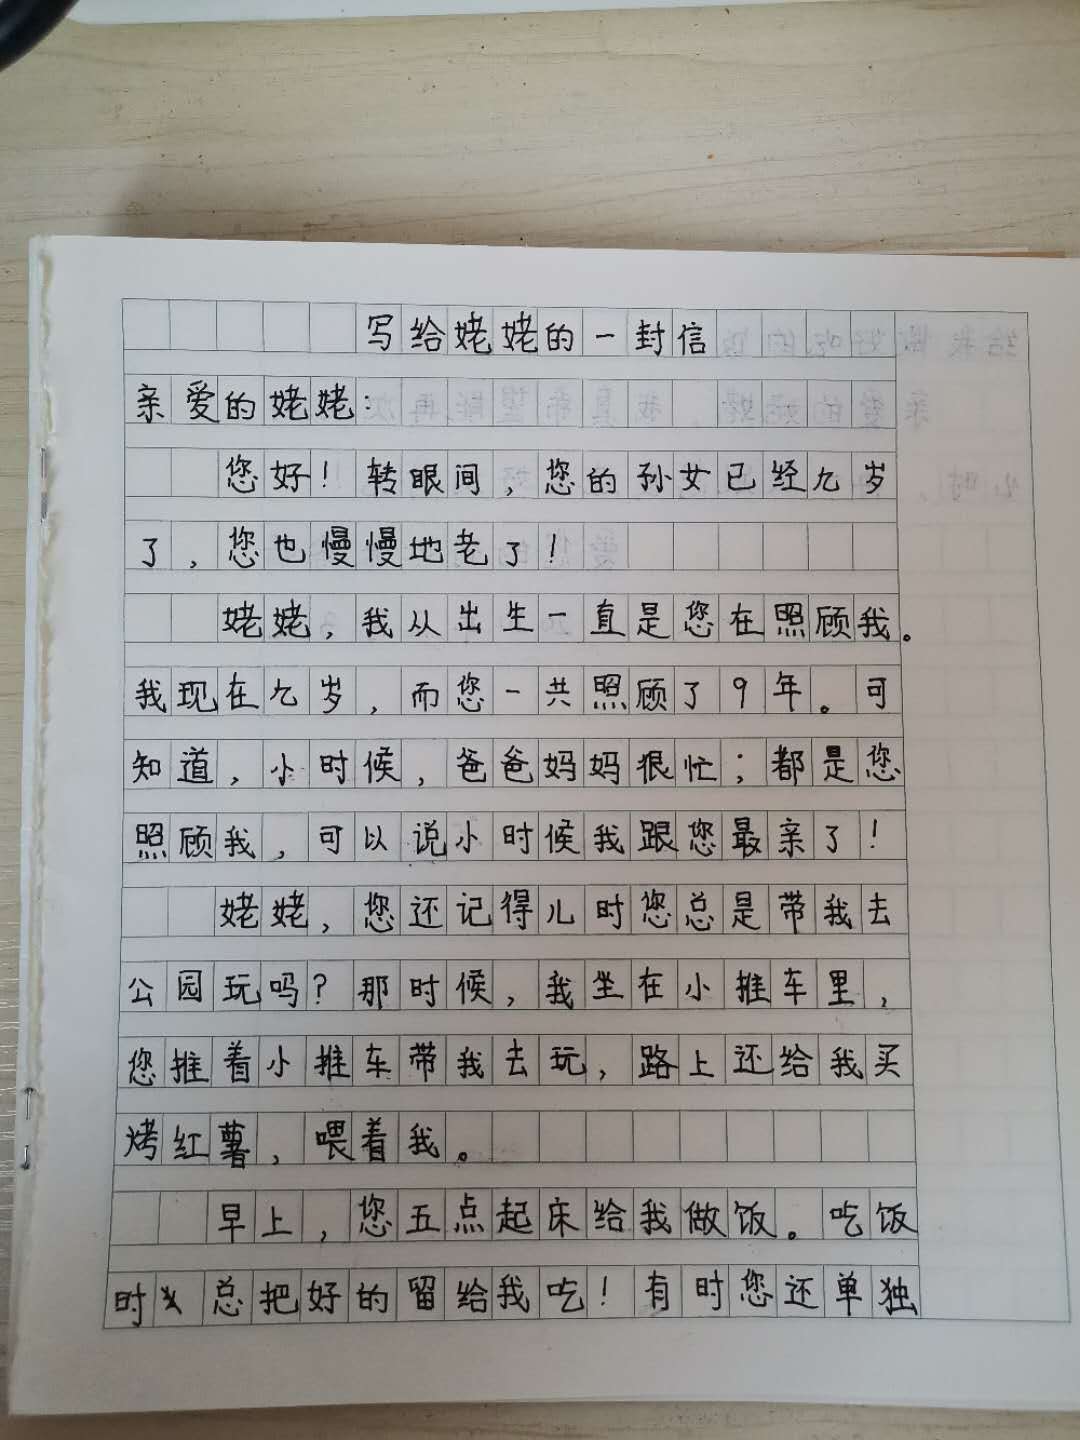 写给姥姥的一封信
亲爱的姥姥：
您好！转眼间，您的孙女已经九岁
了，您也慢慢地老了！
姥姥，我从出生一直是您在照顾我。
我现在九岁，而您一共照顾了9年。可
知道，小时候，爸爸妈妈很忙；都是您
照顾我，可以说小时候我跟您最亲了！
姥姥，您还记得儿时您总是带我去
公园玩吗？那时候，我坐在小推车里，
您推着小推车带我去玩，路上还给我买
烤红薯，喂着我。
早上，您五点起床给我做饭。吃饭
时总把好的留给我吃！有时您还单独